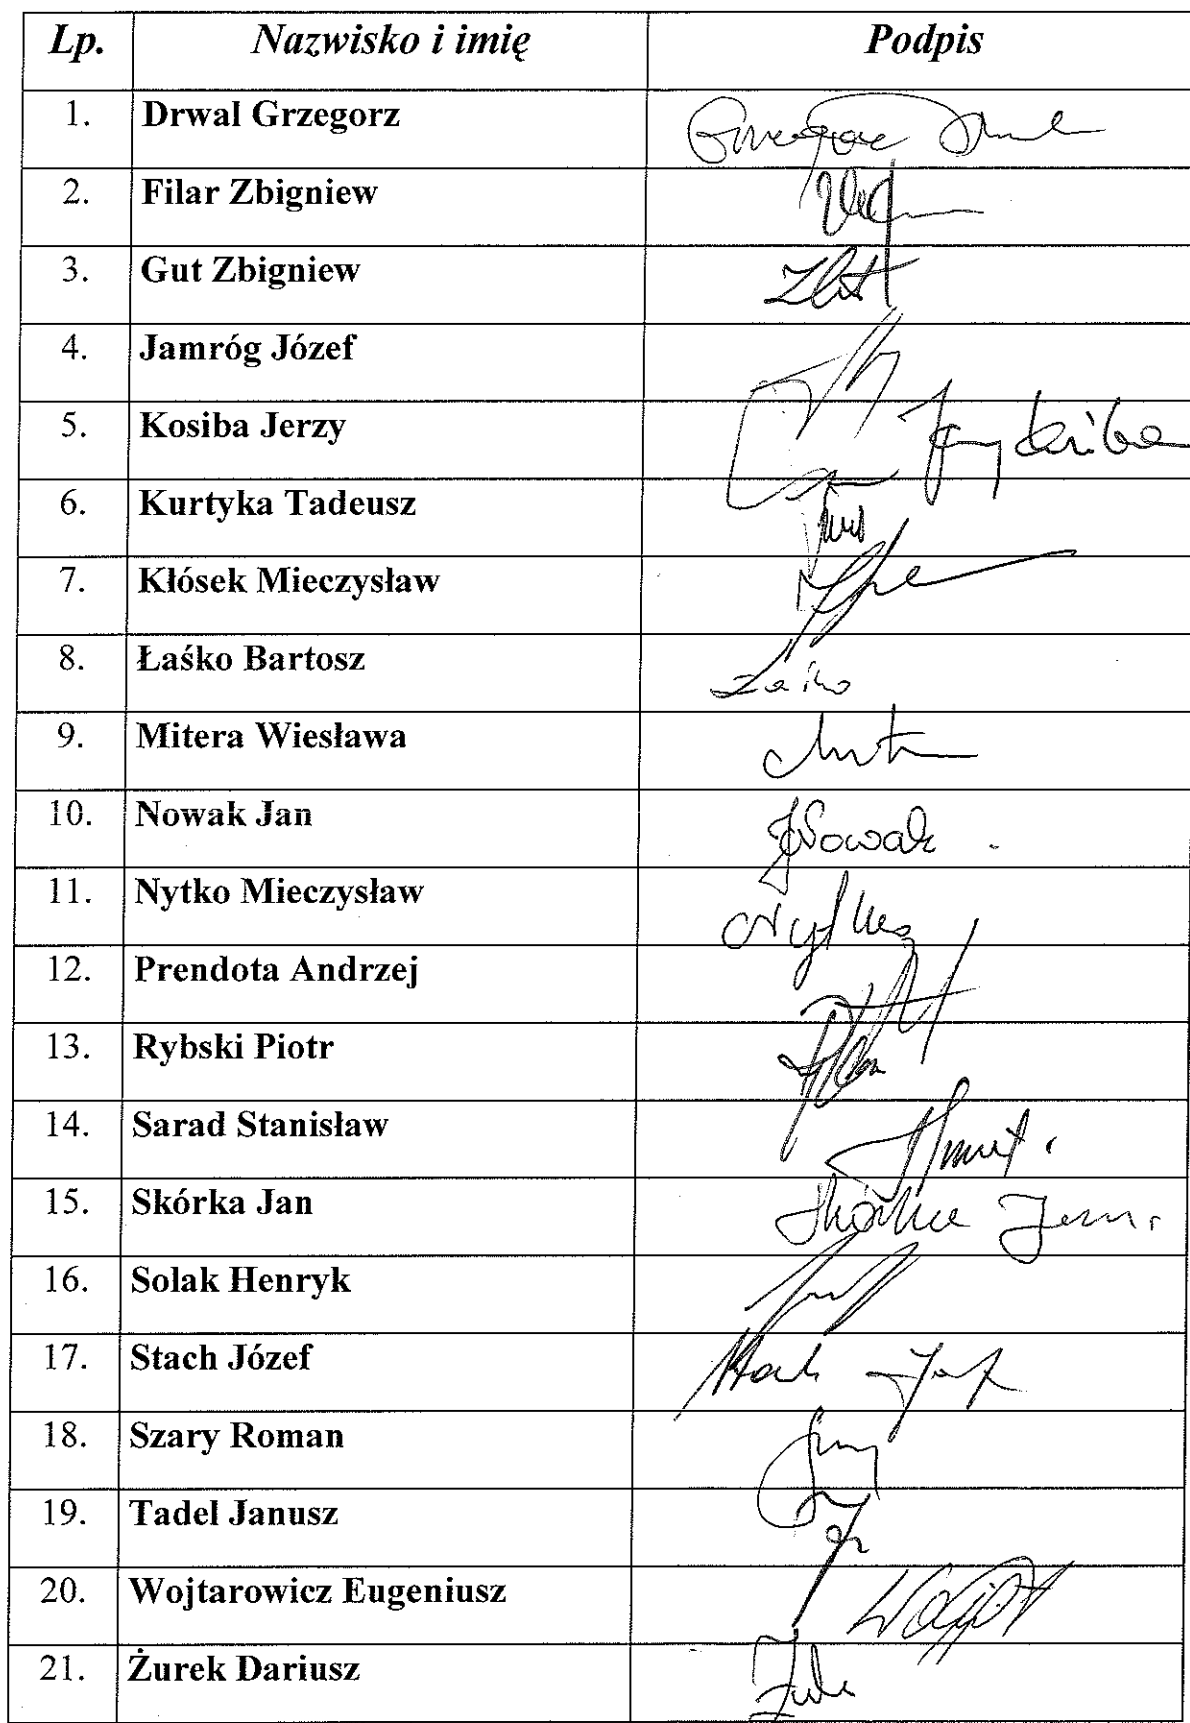 Lp. Nazwisko i imię Podpis
1. Drwal Grzegorz Grzegorz Drwal
2. Filar Zbigniew
3. Gut Zbigniew
4. Jamróg Józef
5. Kosiba Jerzy Jerzy Kosiba
6. Kurtyka Tadeusz
7. Kłósek Mieczysław
8. Łaśko Bartosz Łaśko
9. Mitera Wiesława
10. Nowak Jan JNowak
11. Nytko Mieczysław
12. Prendota Andrzej
13. Rybski Piotr
14. Sarad Stanisław
15. Skórka Jan Skórka Jan
16. Solak Henryk
17. Stach Józef Stach Józef
18. Szary Roman
19. Tadel Janusz
20. Wojtarowicz Eugeniusz
21. Żurek Dariusz